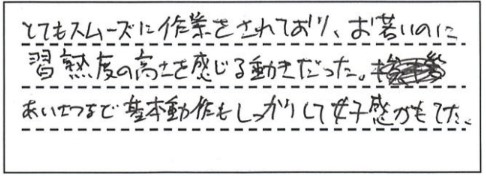 とてもスムーズに作業をされており、お若いのに
習熟度の高さを感じる動きだった。
あいさつなど基本動作もしっかりして好感がもてた。